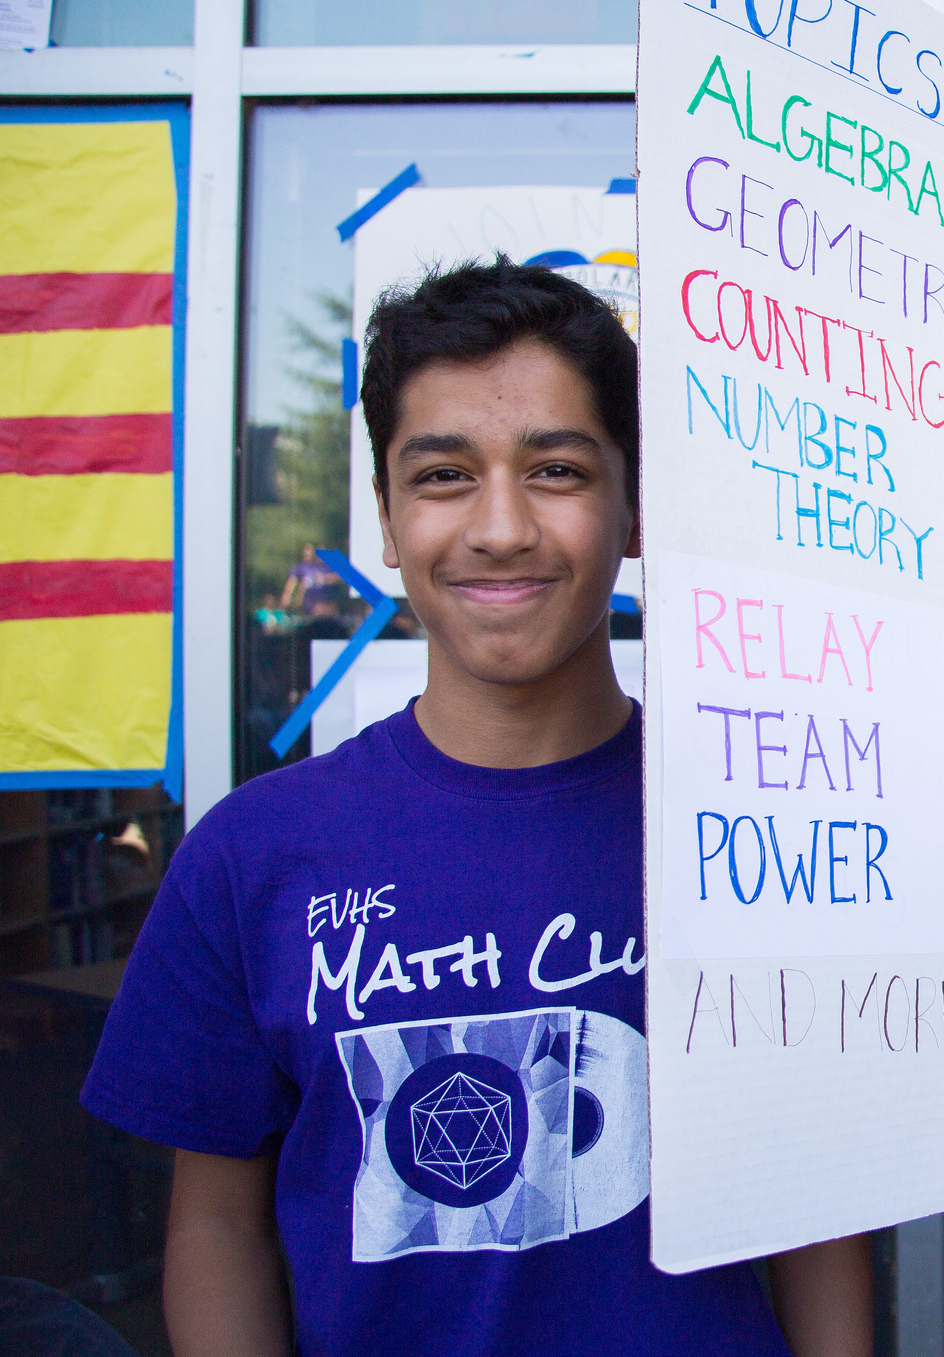 TOPICS
ALGEBRA
GEOMETR
COUNTING
NUMBER
THEORY
RELAY
TEAM
POWER
AND MOR
JOIN
EVHS
MATH CLU